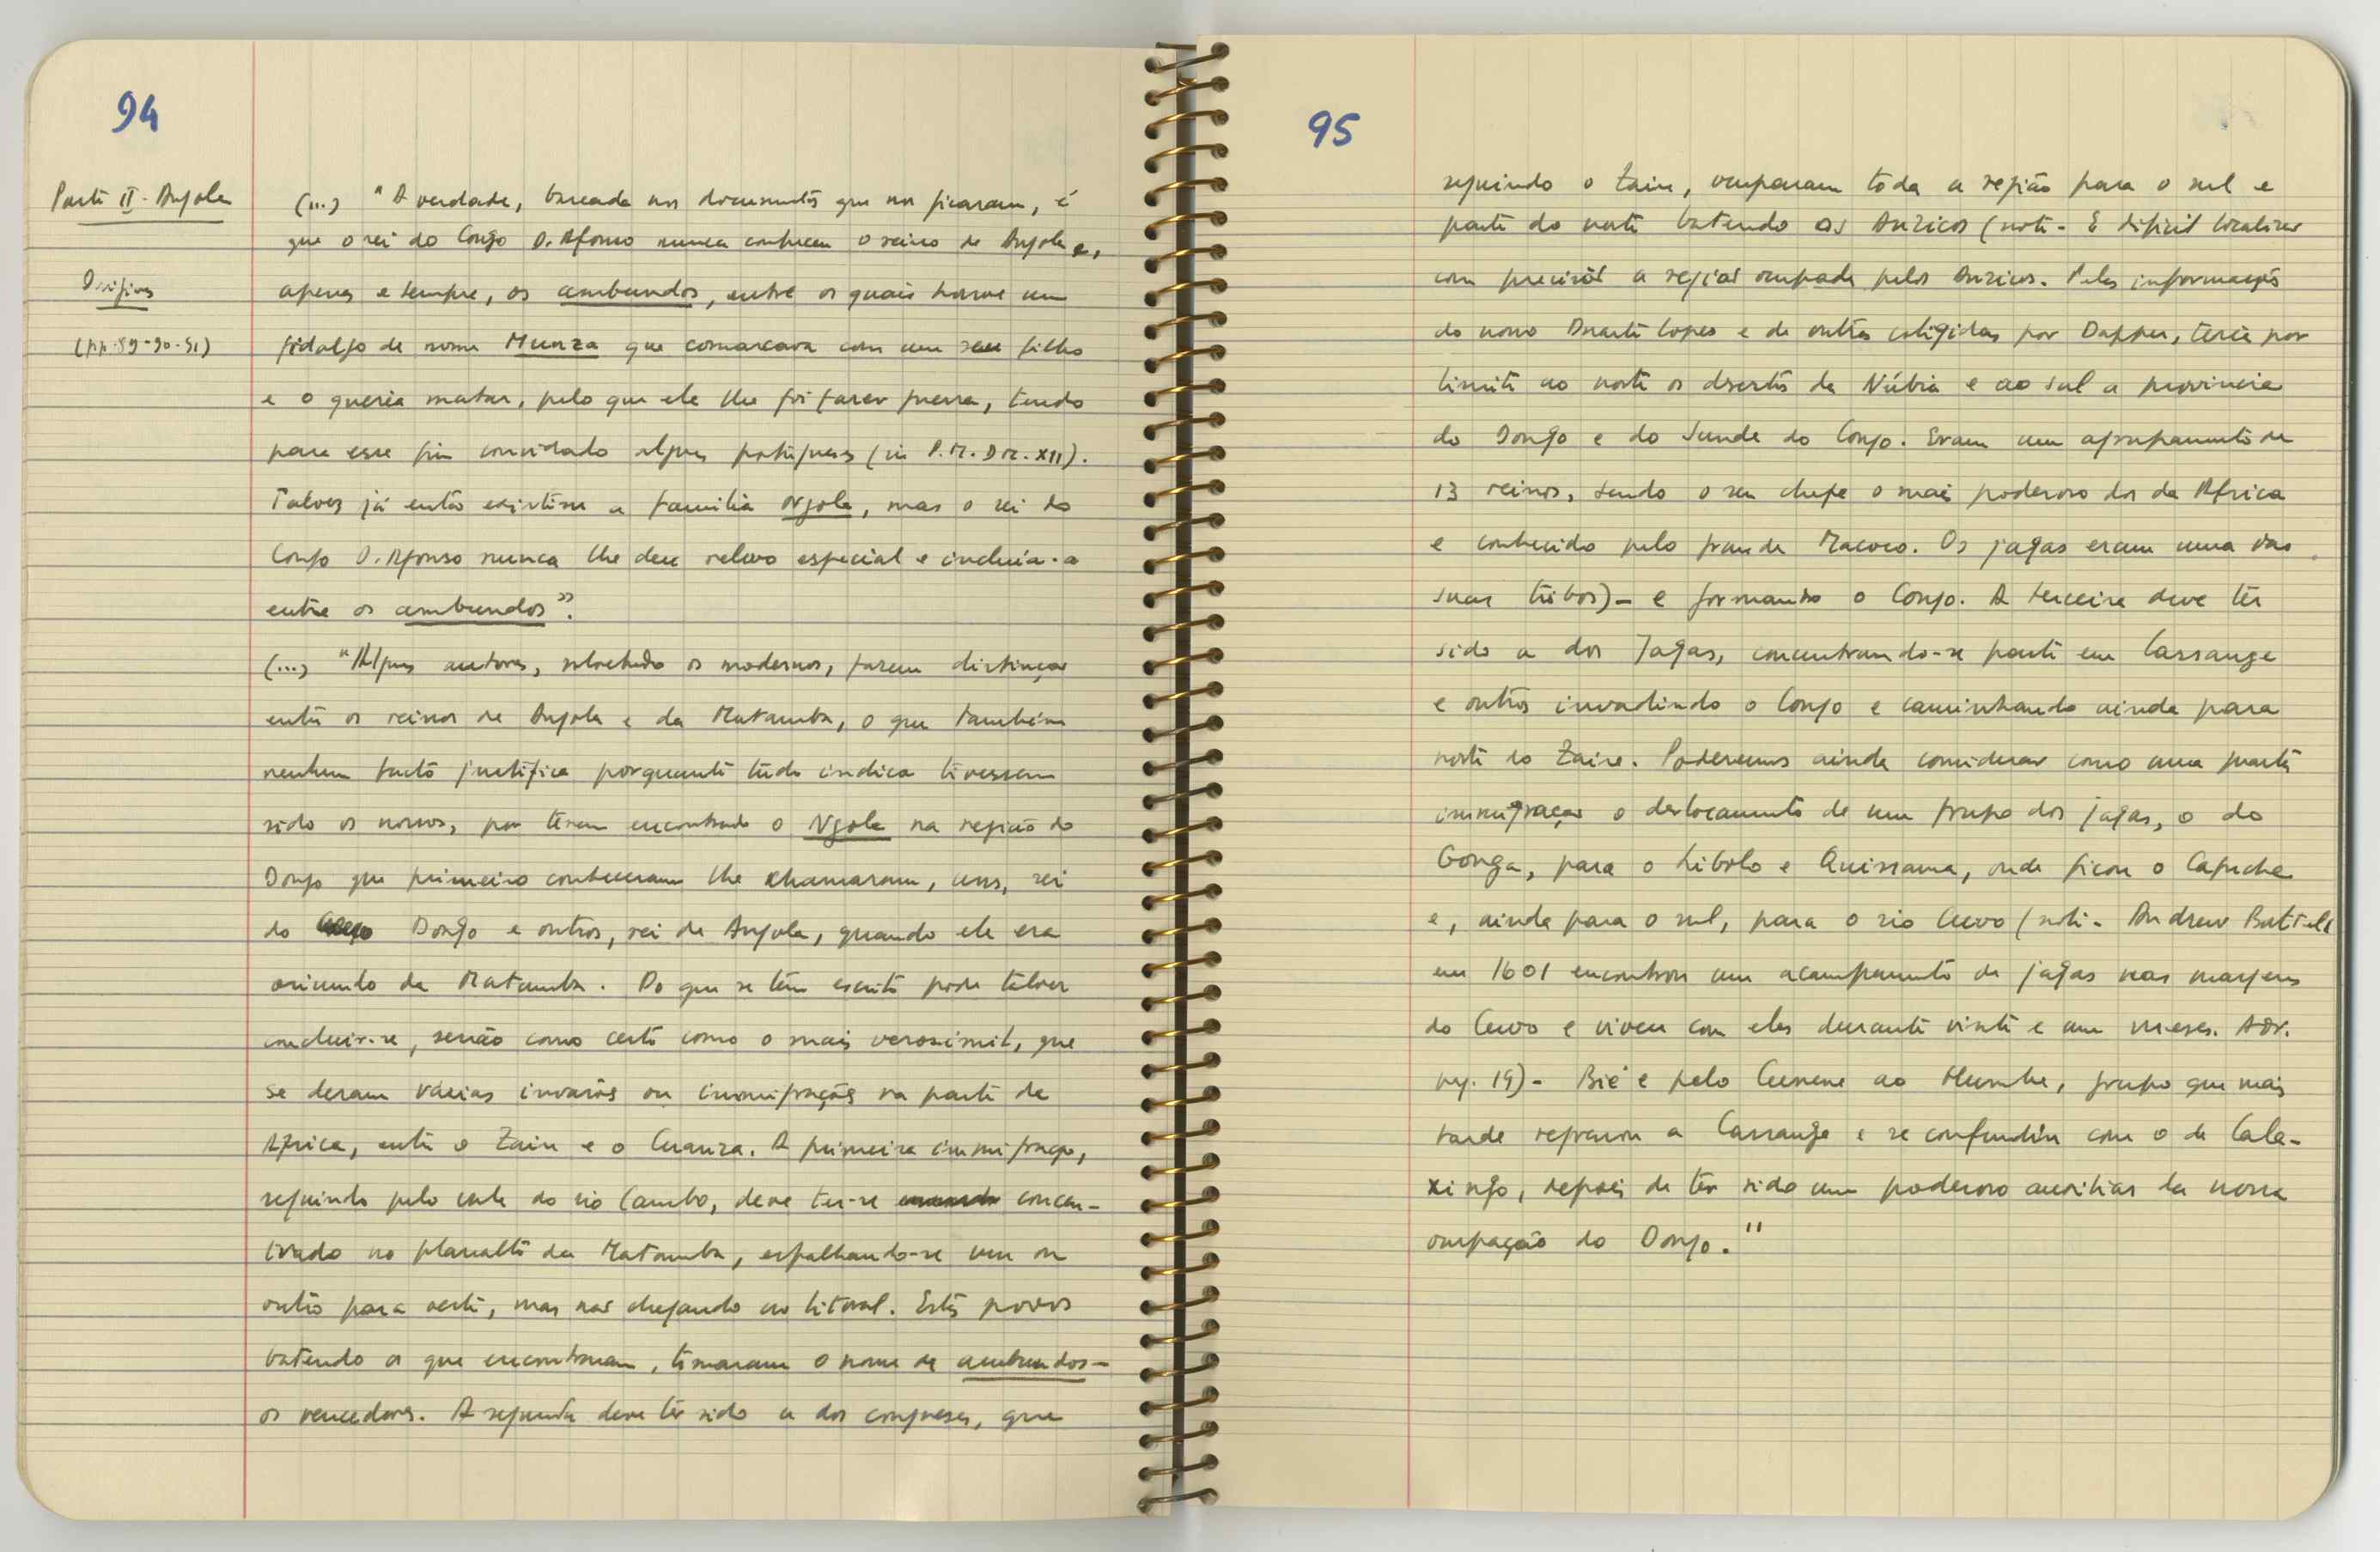 94
Parte II - Angola
Origines
(pp. 89-90-91)
(...) "A verdade, buscada nos documentos que nos ficaram, é
que o rei do Congo D. Afonso nunca conheceu o reino de Angola e,
apenas e sempre, os ambundos, entre os quais houve um
fidalgo de nome Munza que comarcava com um seu filho
e o queria matar, pelo que ele lhe foi fazer guerra, tendo
para esse fim convidado alguns portugueses (in P.M. DR. XII).
Talvez já então existisse a familia Ngola, mas o rei do
Congo D. Afonso nunca lhe deu relevo especial e incluia-a
entre os ambundos".
(...) "Alguns autores, sobretudo os modernos, fazem distinção
entre os reinos de Angola e da Matamba, o que também
nenhum facto justifica porquanto tudo indica tivessem
sido os nossos, por terem encontrado o Ngola na região do
Dongo que primeiro conheceram lhe chamaram, uns, rei
do Dongo e outros, rei de Angola, quando ele era
oriundo da Matamba. Do que se têm escrito pode talvez
concluir-se, senão como certo como o mais verosimil, que
se deram várias invasões ou immigrações na parte de
Africa, entre o Zaire e o Cuanza. A primeira immigração,
seguindo pelo vale do rio Cambo, deve ter-se concen-
trado no planalto da Matamba, espalhando-se um ou
outro para oeste, mas não chegando ao litoral. Estes povos
batendo os que encontraram, tomaram o nome de ambundos -
os vencedores. A segunda deve têr sido a dos congueses, que
95
seguindo o Zaire, ocuparam toda a região para o sul e
parte do norte batendo os Anzicos (nota - É dificil localizar
com precisão a região ocupada pelos Anzicos. Pelas informações
do nosso Duarte Lopes e de outros coligidas por Dapper, teria por
limite ao norte os desertos da Núbia e ao sul a provincia
do Dongo e do Sunde do Congo. Eram um agrupamento de
13 reinos, sendo o seu chefe o mais poderoso dos da Africa
e conhecido pelo grande Macoco. Os jagas eram uma das
suas tribos) - e formando o Congo. A terceira deve têr
sido a dos Jagas, concentrando-se parte em Cassange
e outros invadindo o Congo e caminhando ainda para
norte do Zaire. Poderemos ainda considerar como uma quarta
immigração o deslocamento de um grupo dos jagas, o do
Gonga, para o Libolo e Quissama, onde ficou o Cafuche
e, ainda para o sul, para o rio Cuvo (nota - Andrew Battell
em 1601 encontrou um acampamento de jagas nas margens
do Cuvo e viveu com eles durante vinte e um meses. ADV.
pag. 19) - Bié e pelo Cunene ao Humbe, grupo que mais
tarde regressou a Cassange e se confundiu com o de Cala-
xingo, depois de têr sido um poderoso auxiliar da nossa
ocupação do Dongo."